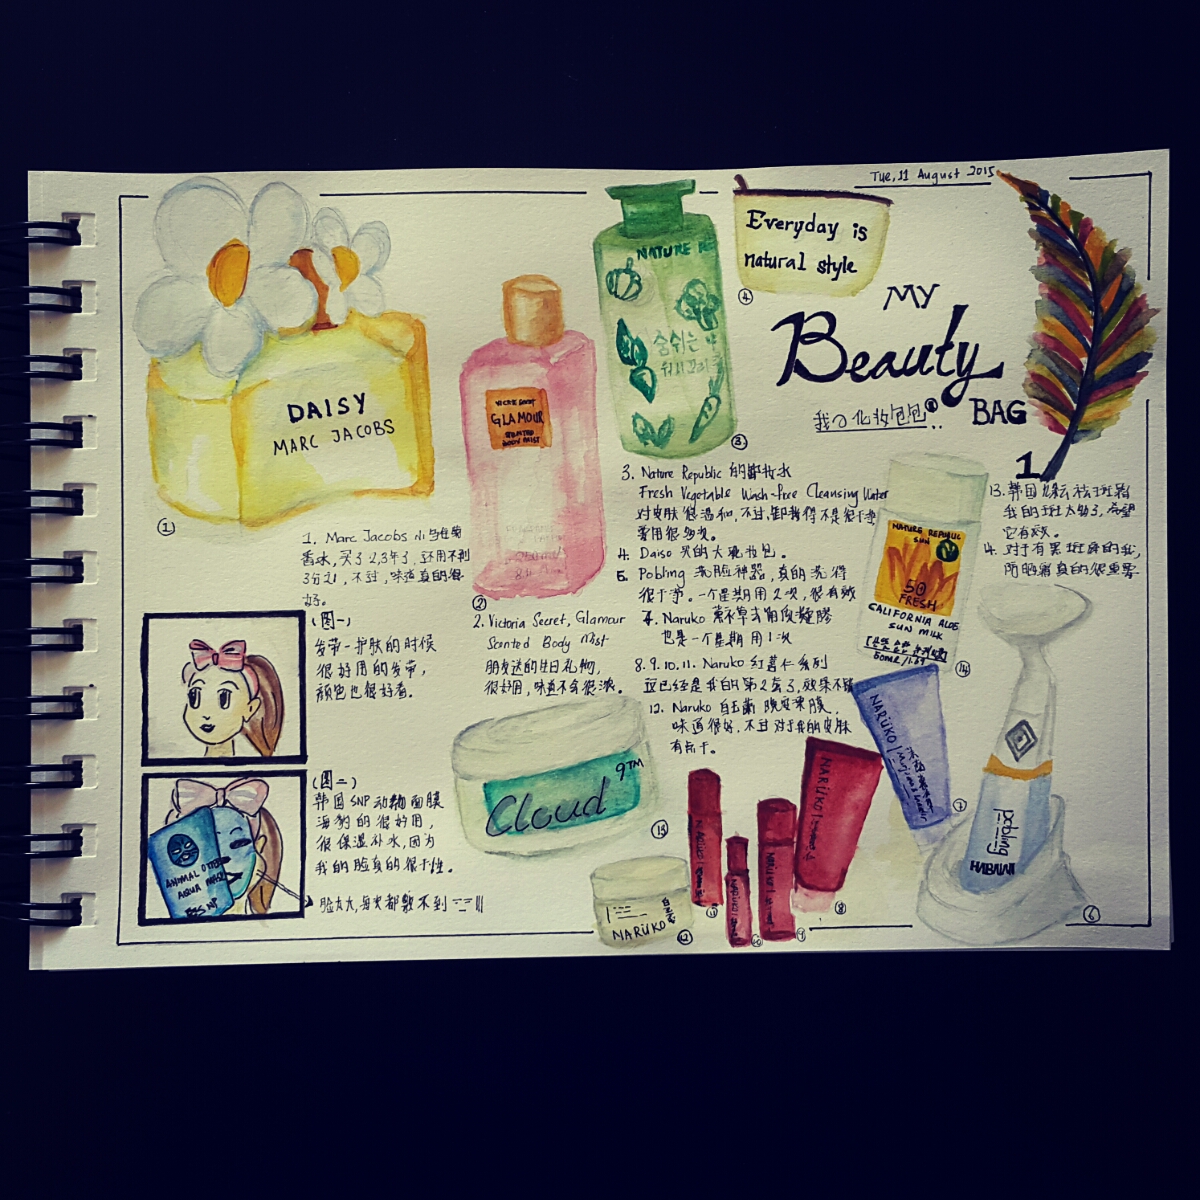 Tue, 11 August 2015
MY
Beauty
BAG
1
化妆包包
Everyday is
natural style
④
DAISY
MARC JACOBS
①
GLAMOUR
SCENTED
BODY MIST
②
NATURE RE
숨쉬는
③
1. Marc Jacobs 小
香水,买了2,3年了,还用不到
3分之1,不过,味道真的很
好。
2. Victoria Secret, Glamour
Scented Body Mist
朋友送的生日礼物,
很好用,味道不会很浓。
3. Nature Republic 的卸妆水
Fresh Vegetable Wash-free Cleansing Water
对皮肤很温和,不过,卸妆得不是很干净
要用很多次。
4. Daiso 买的大化妆包。
5. Pobling 洗脸神器,真的洗得
很干净。一个星期用2次,很有效
7. Naruko 薰衣草去角质凝胶
也是一个星期用1次
8.9.10.11. Naruko 红薏仁系列
已经是我的第2套了,效果不错
12. Naruko 白玉 晚安冻膜
味道很好,不过对于我的皮肤
有点干。
13. 韩国 祛斑霜
我的斑太多了,希望
它有效。
4. 对于有黑斑 的我,
防晒霜真的很重要
(图一)
发带-护肤的时候
很好用的发带,
颜色也很好看。
(图二)
韩国 SNP 动物面膜
海豹的很好用,
很保湿补水,因为
我的脸真的很干性。
脸太大,每次都敷不到
ANIMAL OTTER
AQUA MASK
SNP
Cloud 9™
⑬
NARÜKO
⑫
NARÜKO
⑪
NARÜKO
⑩
⑨
NARÜKO
⑧
NARÜKO
⑦
NATURE REPUBLIC
SUN
50
FRESH
CALIFORNIA ALOE
SUN MILK
⑭
pobling
HABALAN
⑥